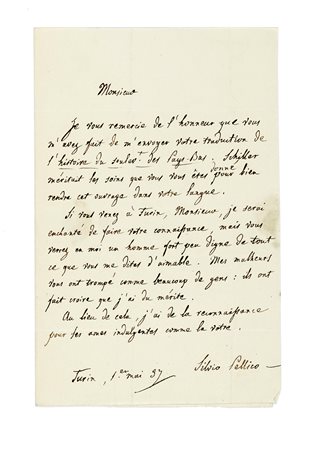 Monsieur
Je vous remercie de l'honneur que vous
m'avez fait de m'envoyer votre traduction de
l'histoire du soulevt. des Pays-Bas. Schiller
méritait les soins que vous vous êtes donné pour bien
rendre cet ouvrage dans votre langue.
Si vous venez à Turin, Monsieur, je serai
enchanté de faire votre connaissance, mais vous
verrez en moi un homme fort peu digne de tout
ce que vous me dites d'aimable. Mes malheurs
vous ont trompé comme beaucoup de gens: ils ont
fait croire que j'ai du mérite.
Au lieu de cela, j'ai de la reconnaissance
pour les ames indulgentes comme la votre.
Turin, 1er mai 37
Silvio Pellico